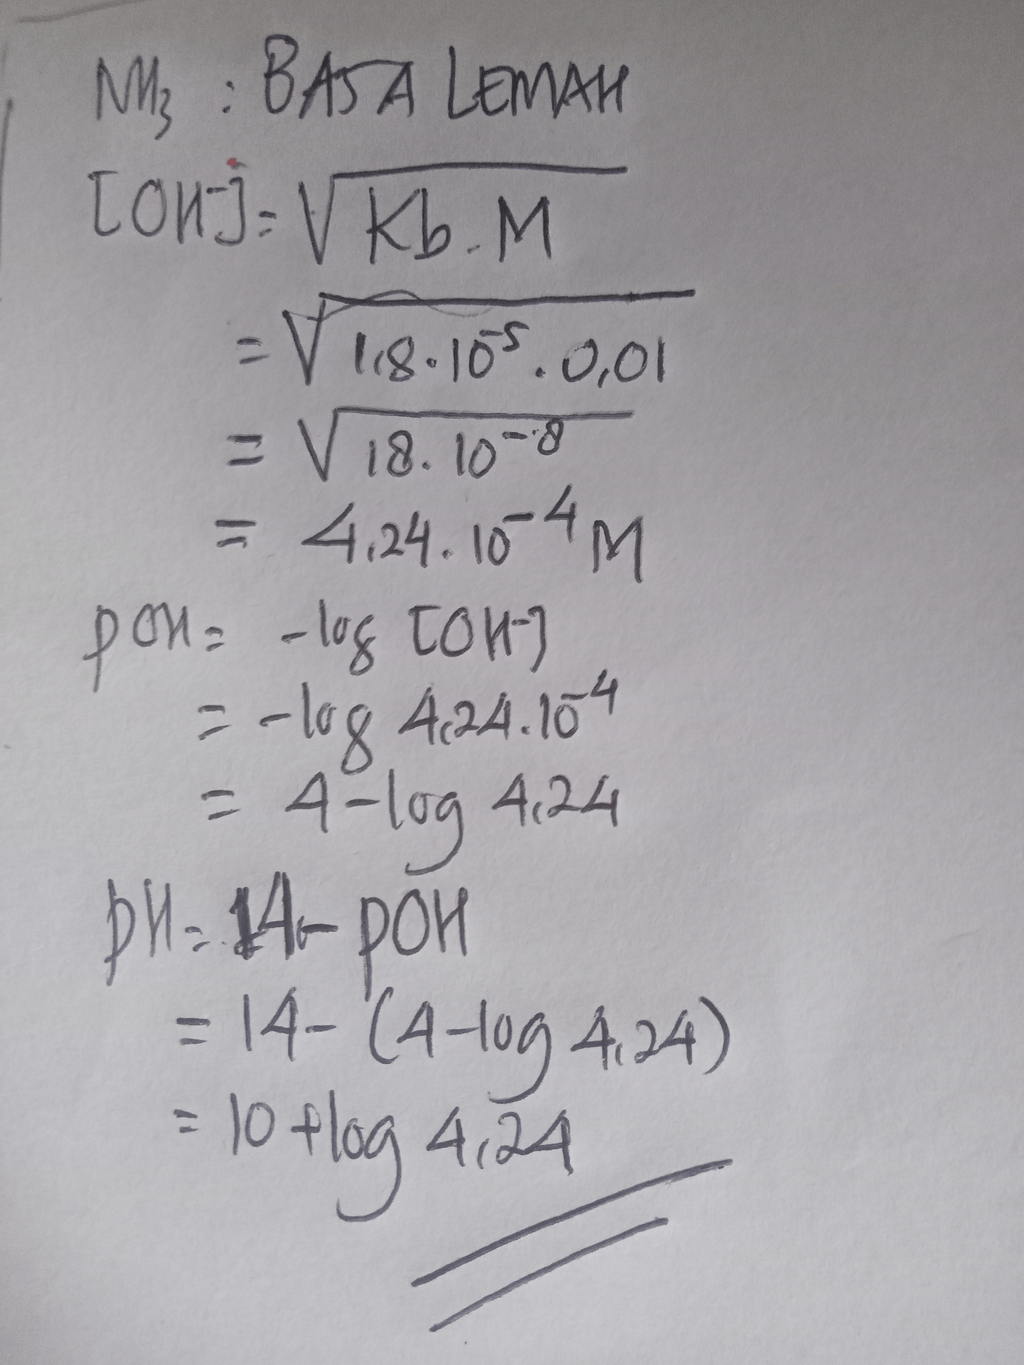 NH₃ : BASA LEMAH
[OH⁻] = √Kb . M
= √1,8 . 10⁻⁵ . 0,01
= √18 . 10⁻⁸
= 4,24 . 10⁻⁴ M
pOH = -log [OH⁻]
= -log 4,24 . 10⁻⁴
= 4 - log 4,24
pH = 14 - pOH
= 14 - (4 - log 4,24)
= 10 + log 4,24